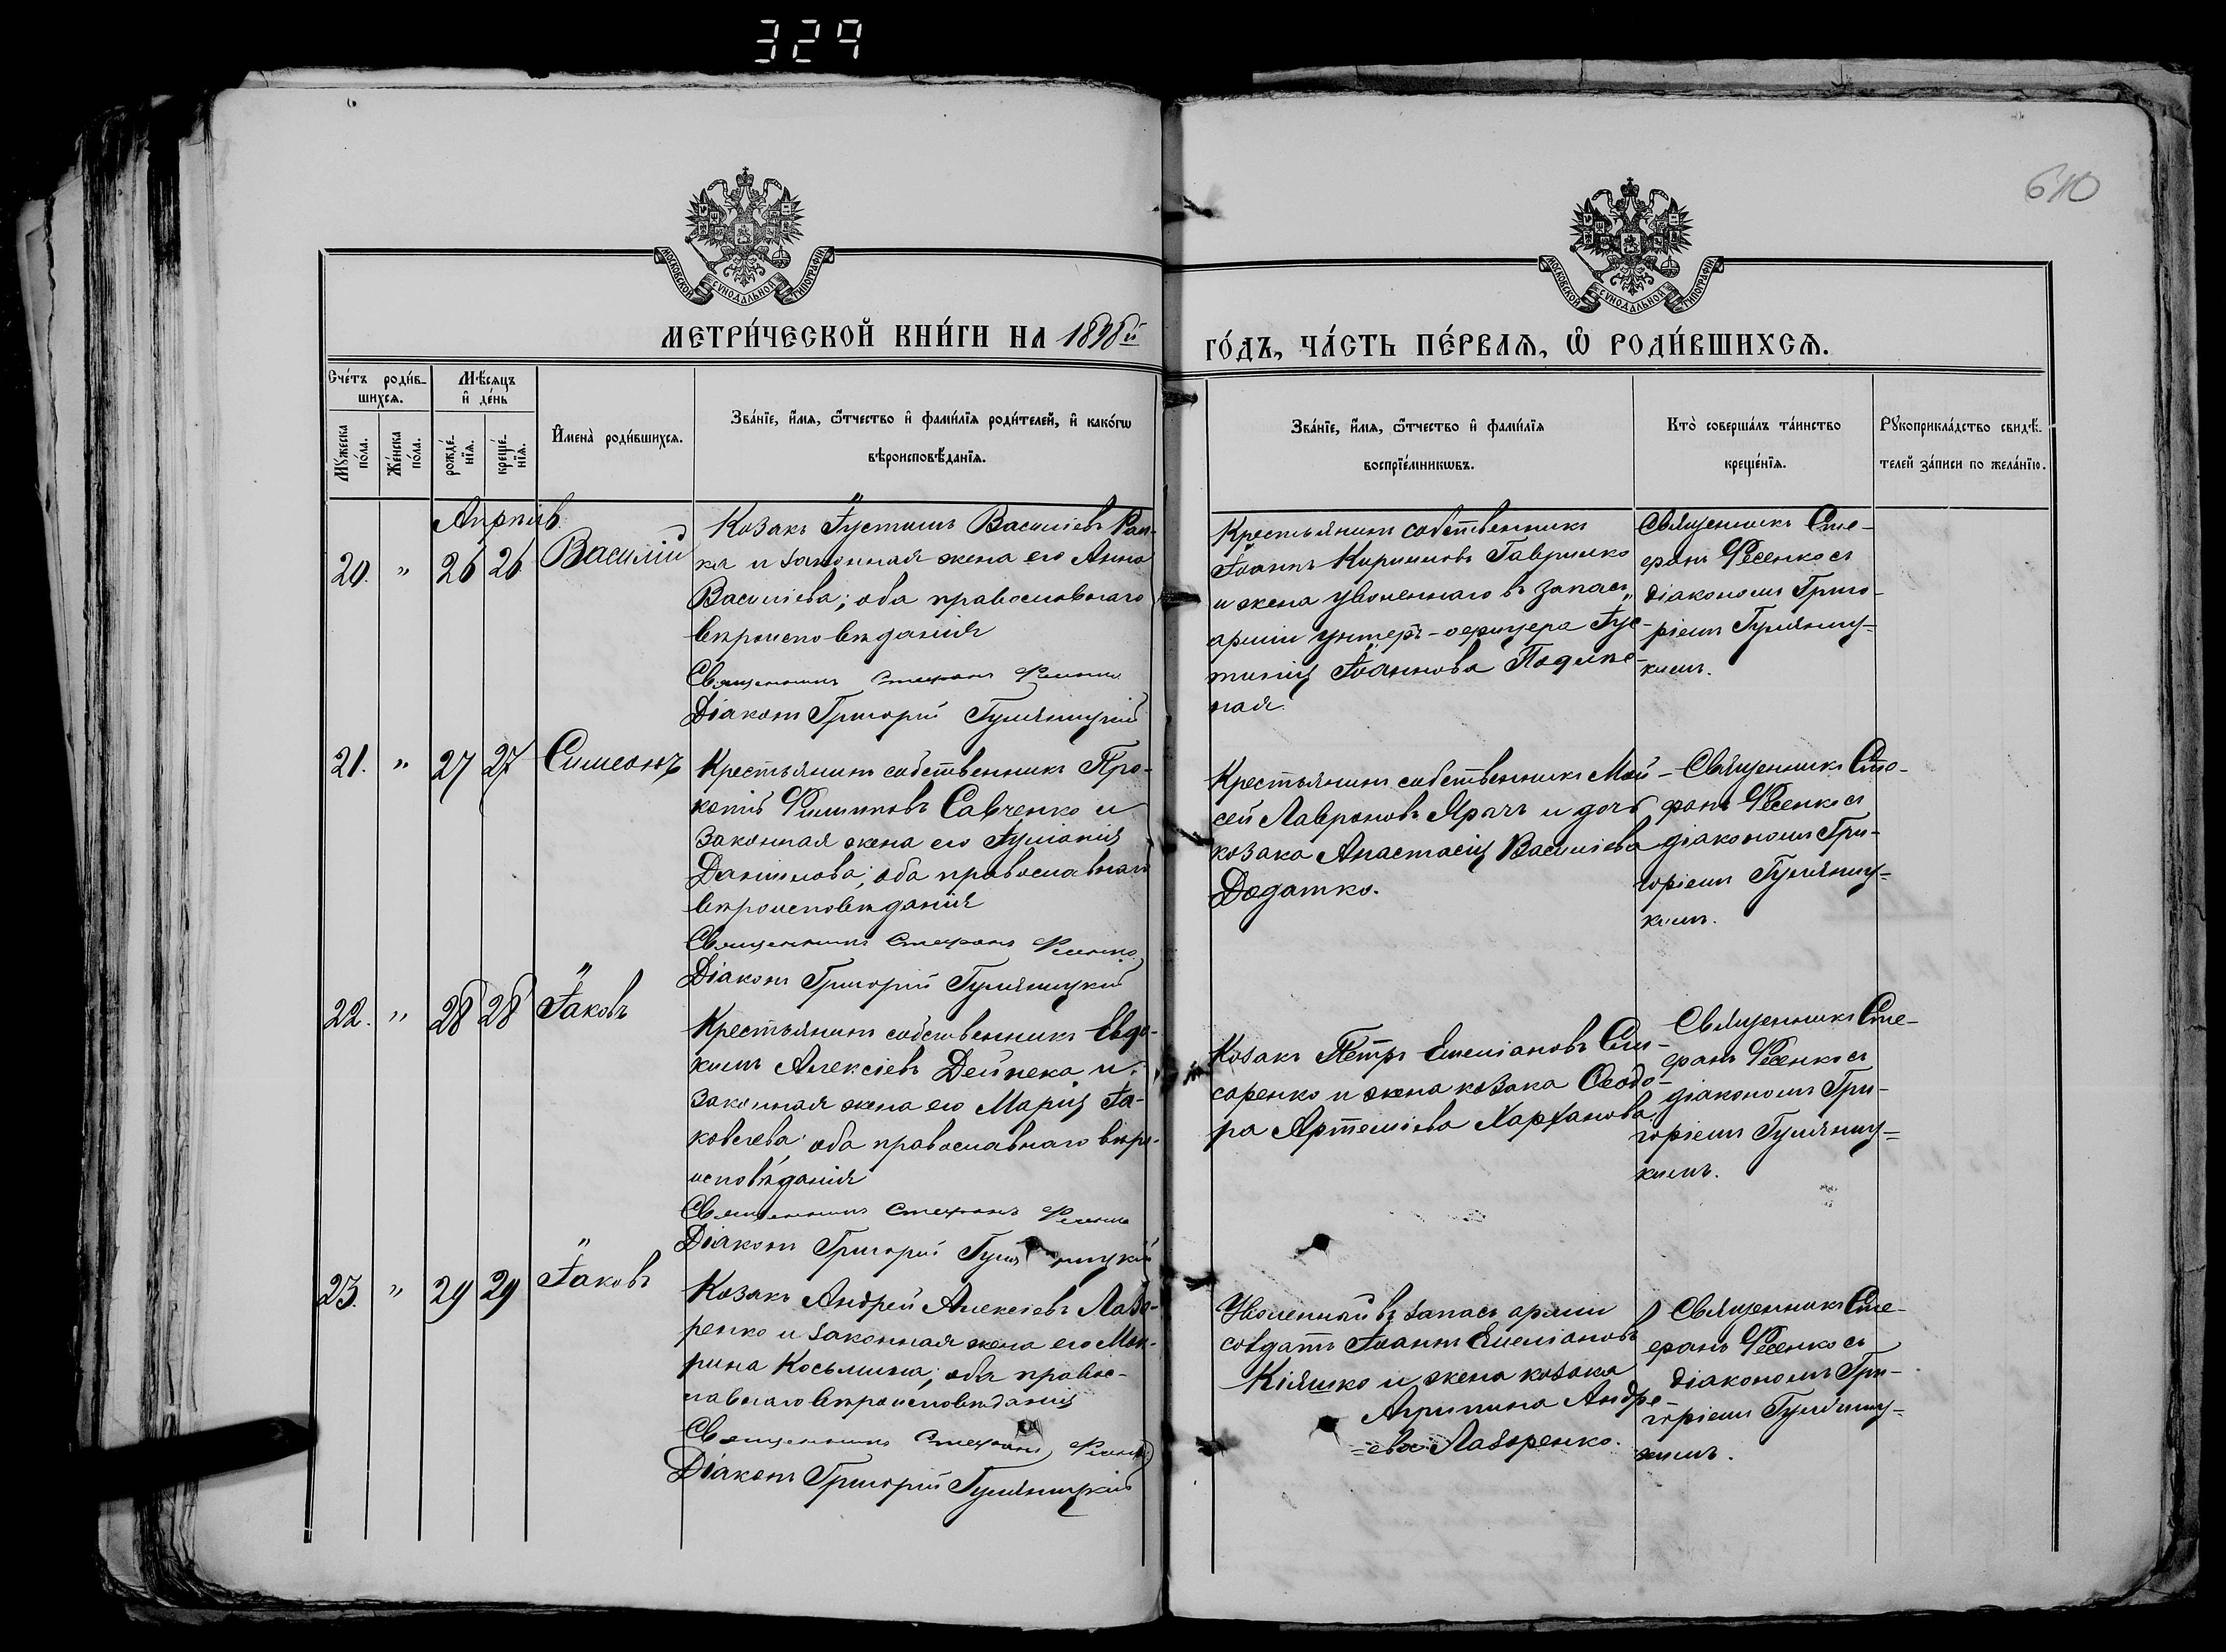 329
610
МОСКОВСКОЙ СУНОДАЛЬНОЙ ТИПОГРАФІИ
МОСКОВСКОЙ СУНОДАЛЬНОЙ ТИПОГРАФІИ
МЕТРИ́ЧЕСКОЙ КНИ́ГИ НА 1898й
ГО́ДЪ, ЧА́СТЬ ПЕ́РВАѦ, Ѽ РОДИ́ВШИХСѦ.
Сче́тъ роди́в-
шихсѧ.
Мꙋ́жеска по́ла.
Же́нска по́ла.
Мѣ́сѧцъ
и҆ де́нь
рожде́-
нїѧ.
креще́-
нїѧ.
И҆мена̀ роди́вшихсѧ.
Зва́нїе, и҆́мѧ, ѻ҆́тчество и҆ фами́лїѧ роди́телей, и҆ како́гѡ
вѣроисповѣ́данїѧ.
Зва́нїе, и҆́мѧ, ѻ҆́тчество и҆ фами́лїѧ
воспрїе́мникѡвъ.
Кто̀ соверша́лъ та́инство
креще́нїѧ.
Рꙋкоприкла́дство свидѣ́-
телей за́писи по жела́нїю.
Апрѣль
20. " 26 26 Василій
Козакъ Іустинъ Василіевъ
и законная жена его Анна
Василіева; оба православнаго
вѣроисповѣданія
Священникъ Стефанъ Фесенко
Діаконъ Григорій Гуляницкій
Крестьянинъ собственникъ
Іоаннъ Кирилловъ Гаврилко
и жена уволеннаго въ запасъ
арміи унтеръ-офицера Іус-
тинія Іоаннова
ная.
Священникъ Сте-
фанъ Фесенко съ
діакономъ Григо-
ріемъ Гуляниц-
кимъ.
21. " 27 27 Симеонъ
Крестьянинъ собственникъ Про-
копій Филипповъ Савченко и
законная жена его Іуліанія
Даніилова; оба православнаго
вѣроисповѣданія
Священникъ Стефанъ Фесенко
Діаконъ Григорій Гуляницкій
Крестьянинъ собственникъ Мои-
сей Лавроновъ Ярачъ и дочь
козака Анастасія Василіева
Додатко.
Священникъ Сте-
фанъ Фесенко съ
діакономъ Гри-
горіемъ Гуляниц-
кимъ.
22. " 28 28 Іаковъ
Крестьянинъ собственникъ Евдо-
кимъ Алексіевъ Дейнека и
законная жена его Марія Іа-
ковлева; оба православнаго вѣро-
исповѣданія
Священникъ Стефанъ Фесенко
Діаконъ Григорій Гуляницкій
Козакъ Петръ Емеліановъ Сли-
саренко и жена козака Ѳеодо-
ра Артеміева
Священникъ Сте-
фанъ Фесенко съ
діакономъ Гри-
горіемъ Гуляниц-
кимъ.
23. " 29 29 Іаковъ
Козакъ Андрей Алексіевъ Лазо-
ренко и законная жена его Ма-
рина Косьмина; оба правос-
лавнаго вѣроисповѣданія
Священникъ Стефанъ Фесенко
Діаконъ Григорій Гуляницкій
Уволенный въ запасъ арміи
солдатъ Іоаннъ Емеліановъ
Кіяшко и жена козака
Агрипина Андре-
ева Лазоренко.
Священникъ Сте-
фанъ Фесенко съ
діакономъ Гри-
горіемъ Гуляниц-
кимъ.